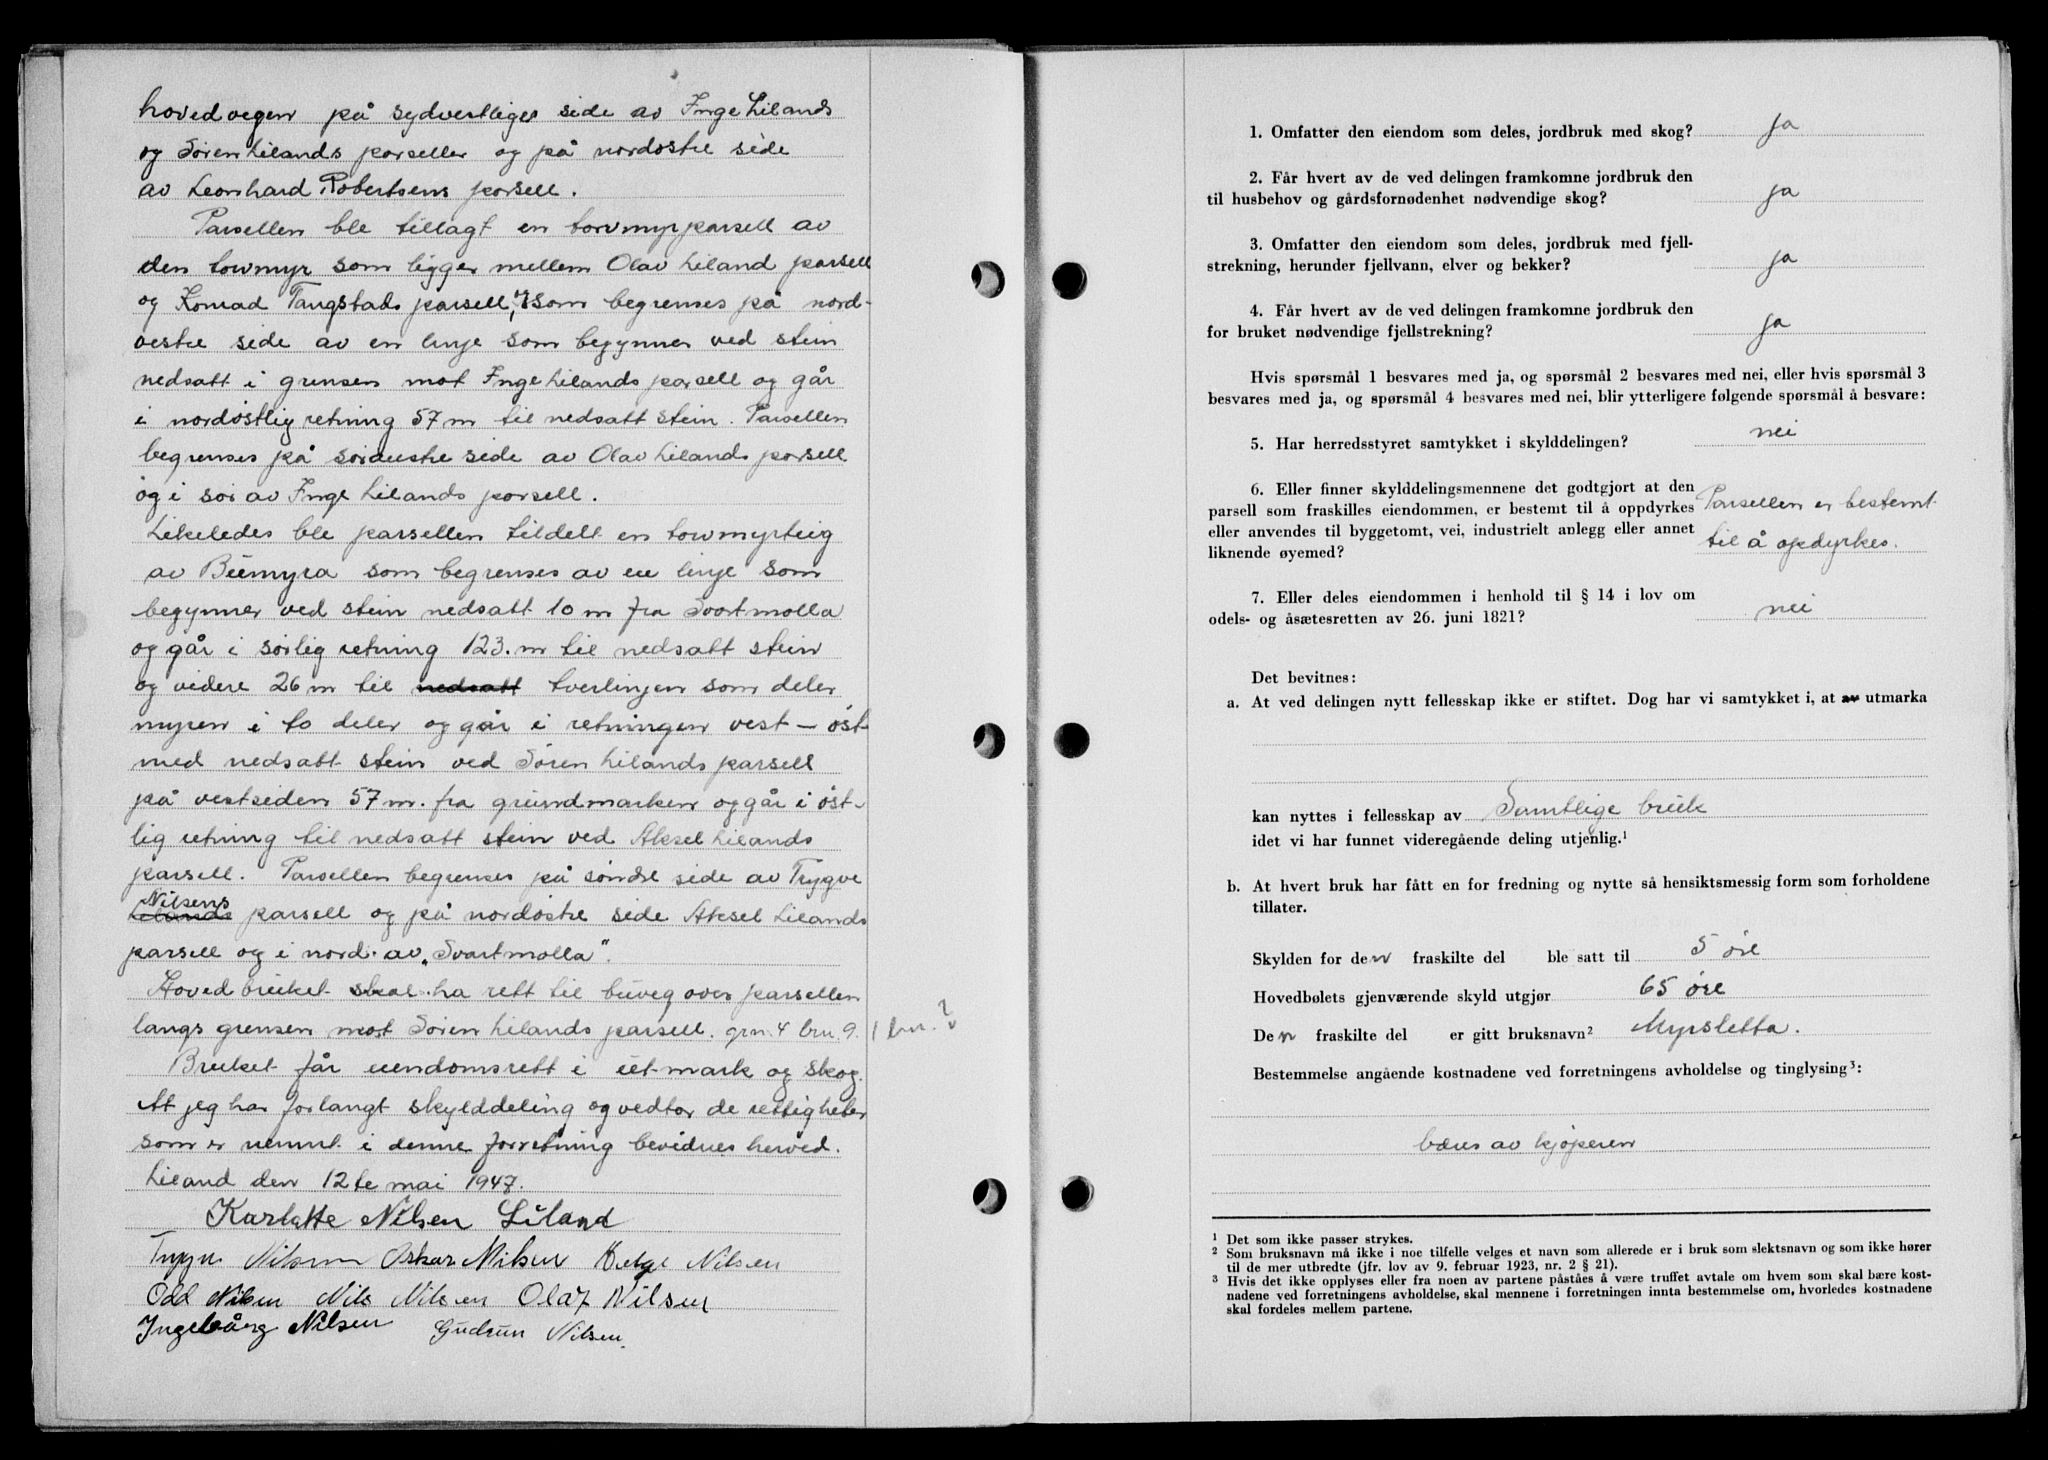 hovedvegen på sydvestliges side av Inge Lilands
og Søren Lilands parseller og på nordøstre side
av Leonhard Robertsens parsell.
Parsellen ble tillagt en torvmyrparsell av
den torvmyr som ligger mellem Olav Liland parsell
og Konrad Tangstads parsell, som begrenses på nord-
vestre side av en linje som begynner ved stein
nedsatt i grensen mot Inge Lilands parsell og går
i nordøstlig retning 57 m til nedsatt stein. Parsellen
begrenses på sørøustre side av Olav Lilands parsell
og i sør av Inge Lilands parsell.
Likeledes ble parsellen tildelt en torvmyrteig
av Buemyra som begrenses av en linje som
begynner ved stein nedsatt 10 m fra Svartmolla
og går i sørlig retning 123. m til nedsatt stein
og videre 26 m til nedsatt tverlinjen som deler
myren i to deler og går i retningen vest – øst
med nedsatt stein ved Søren Lilands parsell
på vestsiden 57 m. fra grundmarken og går i øst-
lig retning til nedsatt stein ved Aksel Lilands
parsell. Parsellen begrenses på søndre side av Trygve
Nilsens
Lilands parsell og på nordøstre side Aksel Lilands
parsell og i nord. av „Svartmolla".
Hovedbruket skal ha rett til buveg over parsellen
langs grensen mot Søren Lilands parsell. grn. 4 brn. 9. 1 brn. ?
Bruket får eiendomsrett i utmark og skog.
At jeg har forlangt skylddeling og vedtar de rettigheter
som er nevnt i denne forretning bevidnes herved.
Liland den 12te mai 1947.
Karlotte Nilsen Liland
Trygv Nilsen Oskar Nilsen Helge Nilsen
Odd Nilsen Nils Nilsen Olaf Nilsen
Ingebårg Nilsen Gudrun Nilsen.
1. Omfatter den eiendom som deles, jordbruk med skog? ja
2. Får hvert av de ved delingen framkomne jordbruk den
til husbehov og gårdsfornødenhet nødvendige skog? ja
3. Omfatter den eiendom som deles, jordbruk med fjell-
strekning, herunder fjellvann, elver og bekker? ja
4. Får hvert av de ved delingen framkomne jordbruk den
for bruket nødvendige fjellstrekning? ja
Hvis spørsmål 1 besvares med ja, og spørsmål 2 besvares med nei, eller hvis spørsmål 3
besvares med ja, og spørsmål 4 besvares med nei, blir ytterligere følgende spørsmål å besvare:
5. Har herredsstyret samtykket i skylddelingen? nei
6. Eller finner skylddelingsmennene det godtgjort at den
parsell som fraskilles eiendommen, er bestemt til å oppdyrkes Parsellen er bestemt
eller anvendes til byggetomt, vei, industrielt anlegg eller annet til å opdyrkes.
liknende øyemed?
7. Eller deles eiendommen i henhold til § 14 i lov om
odels- og åsætesretten av 26. juni 1821? nei
Det bevitnes:
a. At ved delingen nytt fellesskap ikke er stiftet. Dog har vi samtykket i, at av utmarka
kan nyttes i fellesskap av Samtlige bruk
idet vi har funnet videregående deling utjenlig.¹
b. At hvert bruk har fått en for fredning og nytte så hensiktsmessig form som forholdene
tillater.
Skylden for den fraskilte del ble satt til 5 øre
Hovedbølets gjenværende skyld utgjør 65 øre
Den fraskilte del er gitt bruksnavn² Myrsletta.
Bestemmelse angående kostnadene ved forretningens avholdelse og tinglysing³:
bæres av kjøperen
¹ Det som ikke passer strykes.
² Som bruksnavn må ikke i noe tilfelle velges et navn som allerede er i bruk som slektsnavn og som ikke hører
til de mer utbredte (jfr. lov av 9. februar 1923, nr. 2 § 21).
³ Hvis det ikke opplyses eller fra noen av partene påståes å være truffet avtale om hvem som skal bære kost-
nadene ved forretningens avholdelse, skal mennene i forretningen innta bestemmelse om, hvorledes kostnadene
skal fordeles mellem partene.